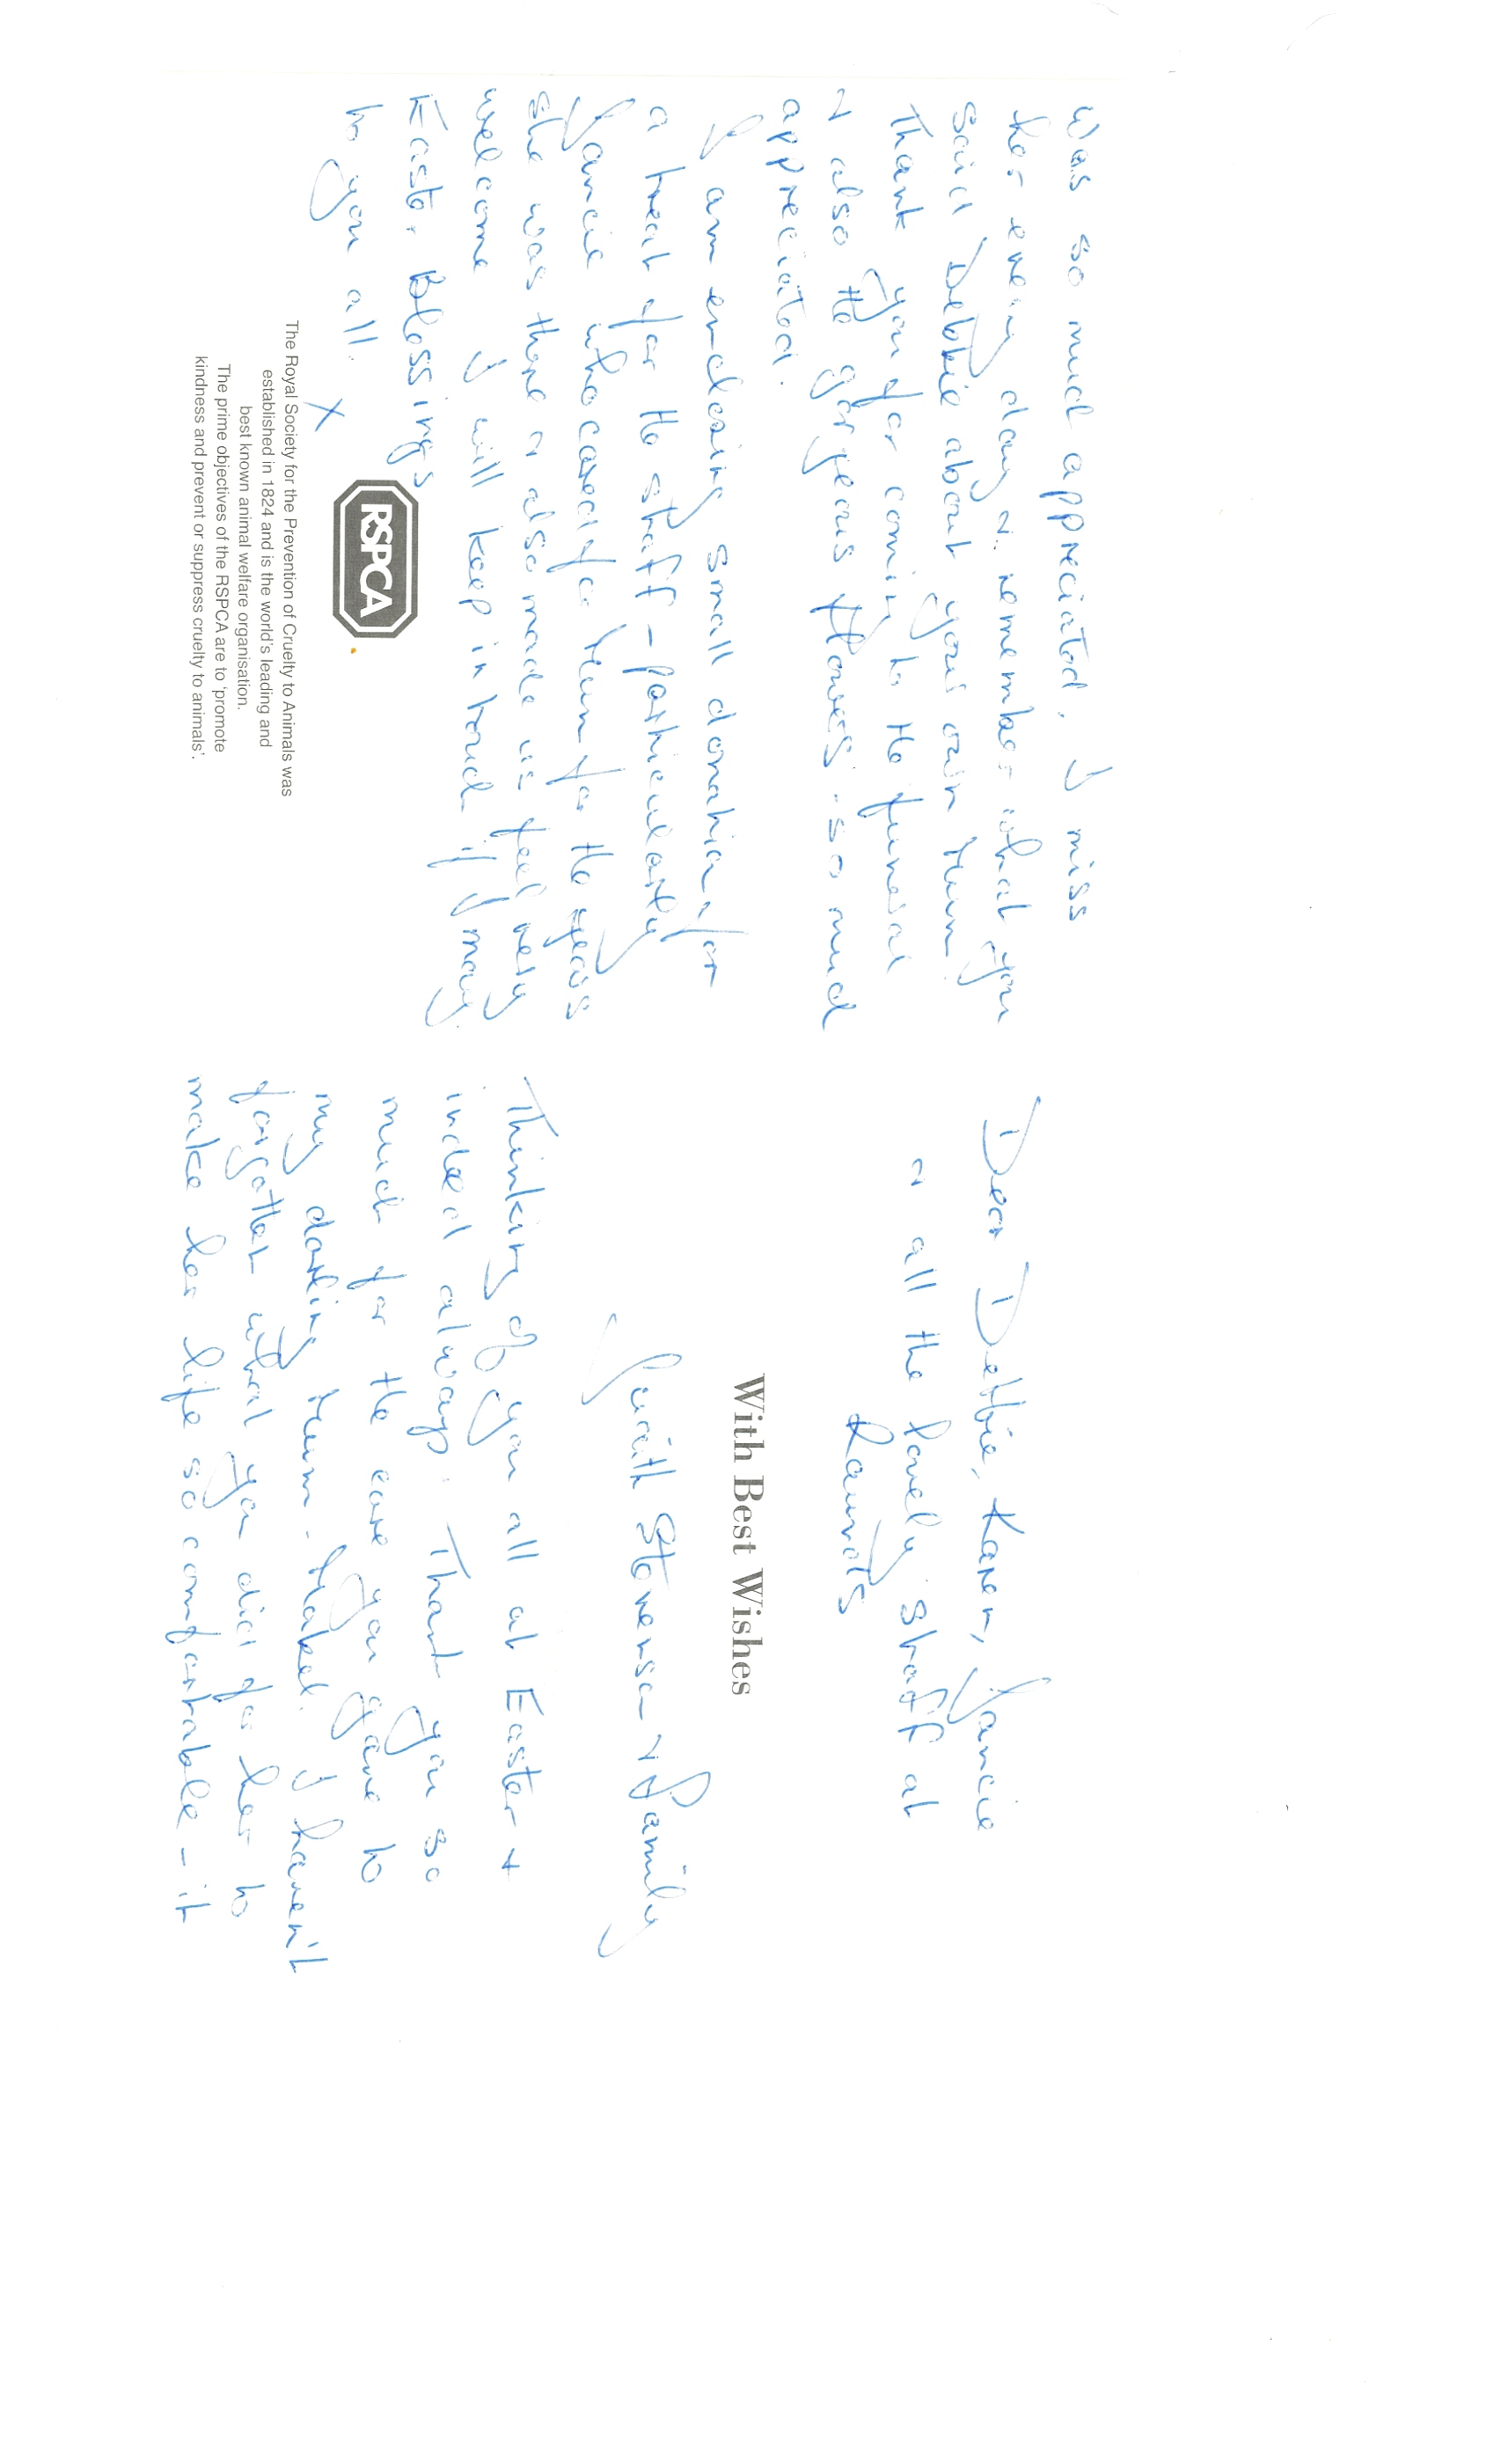 Dear Debbie, Karen, Jancie
& all the lovely staff at
With Best Wishes
Judith Stevenson & Family
Thinking of you all at Easter &
indeed always. Thank you so
much for the care you gave to
my darling Mum - Mabel. I haven't
forgotten what you did for her to
make her life so comfortable - it
was so much appreciated. I miss
her every day &.. remember what you
said Debbie about your own Mum.
Thank you for coming to the funeral
& also the gorgeous flowers - so much
appreciated.
I am enclosing small donation for
a treat for the staff - particularly
Jancie who cared for Mum for the years
she was there & also made us feel very
welcome I will keep in touch if I may.
Easter Blessings
to you all. X
RSPCA
The Royal Society for the Prevention of Cruelty to Animals was
established in 1824 and is the world's leading and
best known animal welfare organisation.
The prime objectives of the RSPCA are to 'promote
kindness and prevent or suppress cruelty to animals'.